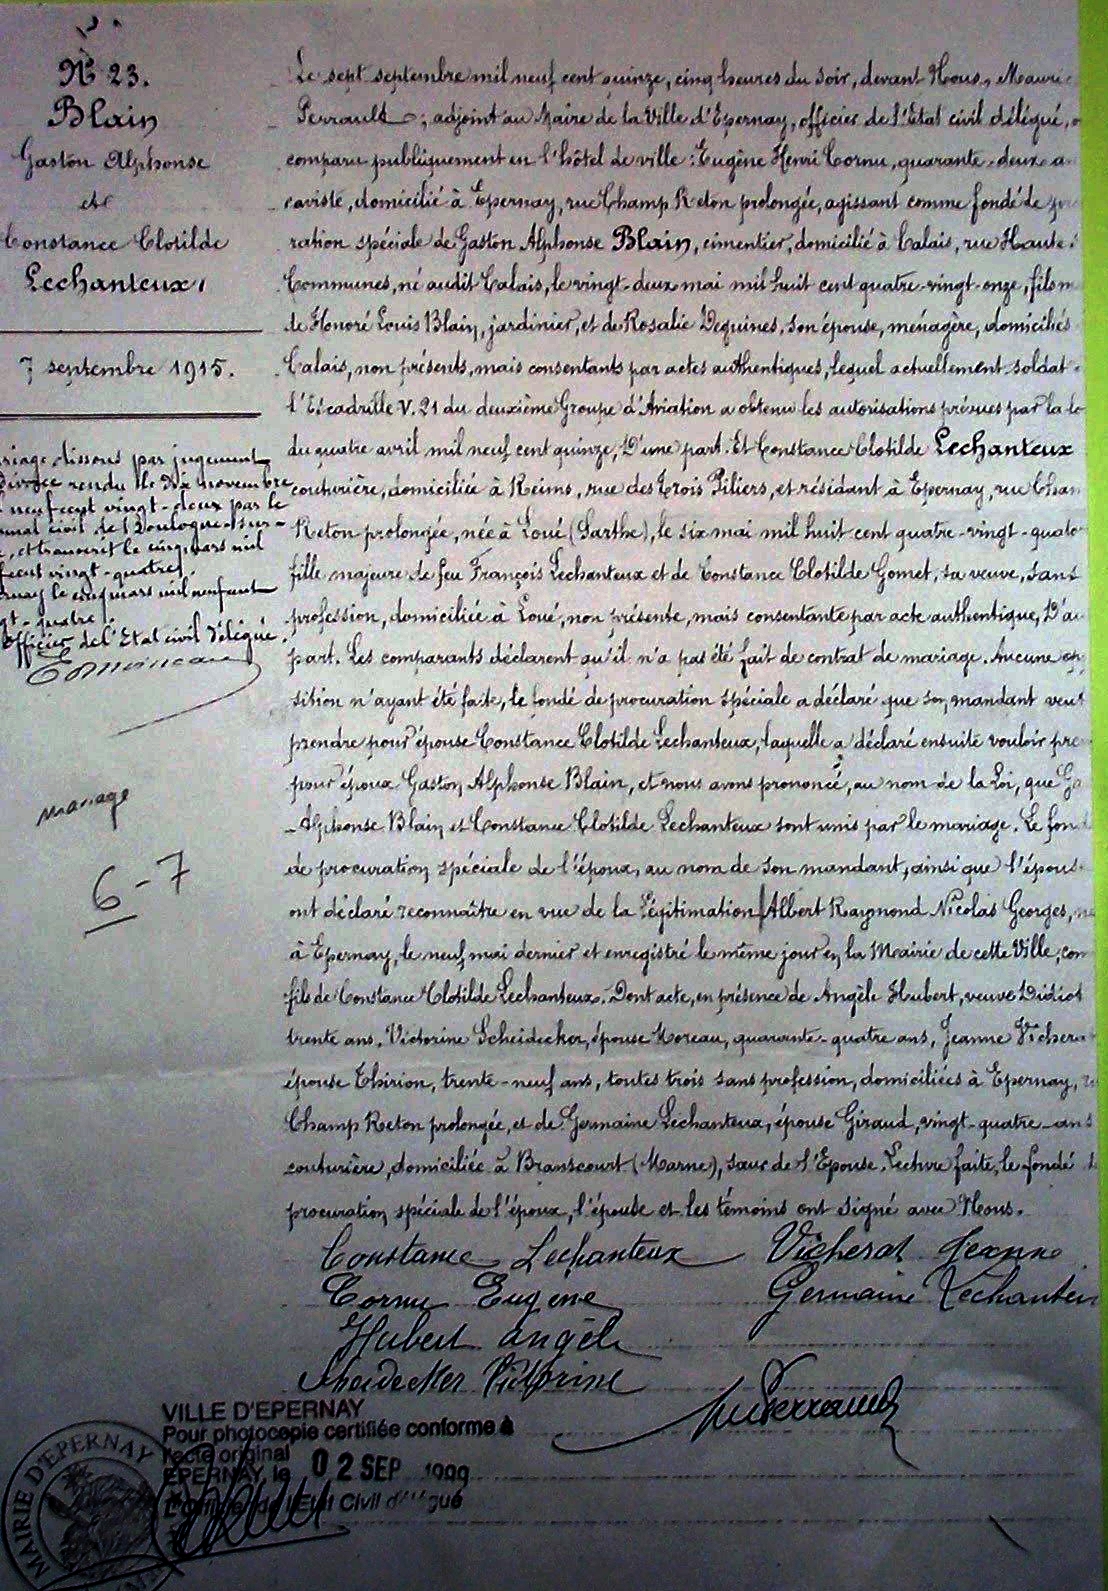 N° 23.
Blain
Gaston Alphonse
et
Constance Clotilde
Lechanteux
7 septembre 1915.
riage dissous par jugement
divorce rendu le dix novembre
neuf cent vingt-deux par le
unal civil de Boulogne-sur-
, et transcrit le cinq mars mil
f cent vingt-quatre.
rnay le cinq mars mil neuf cent
gt-quatre.
Officier de l'Etat civil délégué.
mariage
6-7
Le sept septembre mil neuf cent quinze, cinq heures du soir, devant Nous, Mauri
Perrault, adjoint au Maire de la Ville d'Epernay, officier de l'Etat civil délégué, o
comparu publiquement en l'hôtel de ville : Eugène Henri Cornu, quarante-deux a
caviste, domicilié à Epernay, rue Champ Reton prolongée, agissant comme fondé de
ration spéciale de Gaston Alphonse Blain, cimentier, domicilié à Calais, rue Haute
Communes, né audit Calais, le vingt-deux mai mil huit cent quatre-vingt-onze, fils m
de Honoré Louis Blain, jardinier, et de Rosalie Dequines, son épouse, ménagère, domiciliés
Calais, non présents, mais consentants par actes authentiques, lequel actuellement soldat
l'Escadrille V. 21 du deuxième Groupe d'Aviation a obtenu les autorisations prévues par la lo
du quatre avril mil neuf cent quinze, D'une part. Et Constance Clotilde Lechanteux
couturière, domiciliée à Reims, rue des Trois Piliers, et résidant à Epernay, rue Cham
Reton prolongée, née à Loué (Sarthe), le six mai mil huit cent quatre-vingt-quato
fille majeure de feu François Lechanteux et de Constance Clotilde Gomet, sa veuve, sans
profession, domiciliée à Loué, non présente, mais consentante par acte authentique, D'au
part. Les comparants déclarent qu'il n'a pas été fait de contrat de mariage. Aucune op
sition n'ayant été faite, le fondé de procuration spéciale a déclaré que son mandant veut
prendre pour épouse Constance Clotilde Lechanteux, laquelle a déclaré ensuite vouloir pre
pour époux Gaston Alphonse Blain, et nous avons prononcé, au nom de la Loi, que Ga
Alphonse Blain et Constance Clotilde Lechanteux sont unis par le mariage. Le fond
de procuration spéciale de l'époux, au nom de son mandant, ainsi que l'épous
ont déclaré reconnaître en vue de la Légitimation Albert Raymond Nicolas Georges, né
à Epernay, le neuf mai dernier et enregistré le même jour en la Mairie de cette Ville, com
fils de Constance Clotilde Lechanteux. Dont acte, en présence de Angèle Hubert, veuve Didiot
trente ans, Victorine Scheidecker, épouse Moreau, quarante-quatre ans, Jeanne Vicherat
épouse Thirion, trente-neuf ans, toutes trois sans profession, domiciliées à Epernay,
Champ Reton prolongée, et de Germaine Lechanteux, épouse Giraud, vingt-quatre ans
couturière, domiciliée à Branscourt (Marne), sœur de l'Epouse. Lecture faite, le fondé de
procuration spéciale de l'époux, l'épouse et les témoins ont signé avec Nous.
Constance Lechanteux Vicherat Jeanne
Cornu Eugène Germaine Lechanteu
Hubert Angèle
Scheidecker Victorine
VILLE D'EPERNAY
Pour photocopie certifiée conforme à
l'acte original
EPERNAY, le 02 SEP 1999
L'Officier de l'Etat Civil délégué
MAIRIE D'EPERNAY